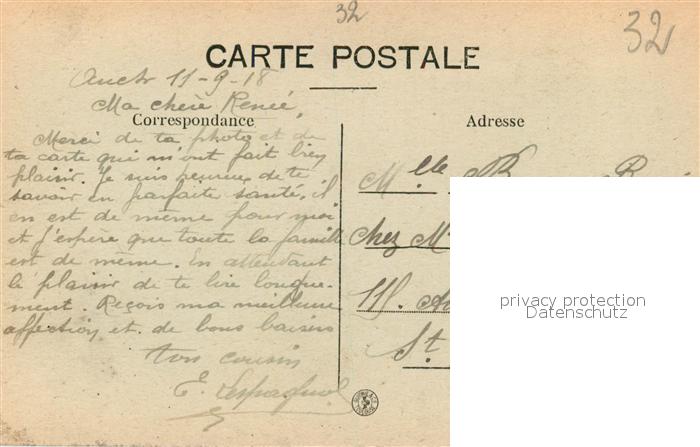 32
32
CARTE POSTALE
Auch 11-9-18
Ma chère Renée,
Correspondance
Adresse
Merci de ta photo et de
ta carte qui m'ont fait bien
plaisir. Je suis heureux de te
savoir en parfaite santé, il
en est de même pour moi
et j'espère que toute la famille
est de même. En attendant
le plaisir de te lire longue-
ment. Reçois ma meilleure
affection et de bons baisers
ton cousin
E. Lespagnol
Mlle
chez M
111.
St
privacy protection
Datenschutz